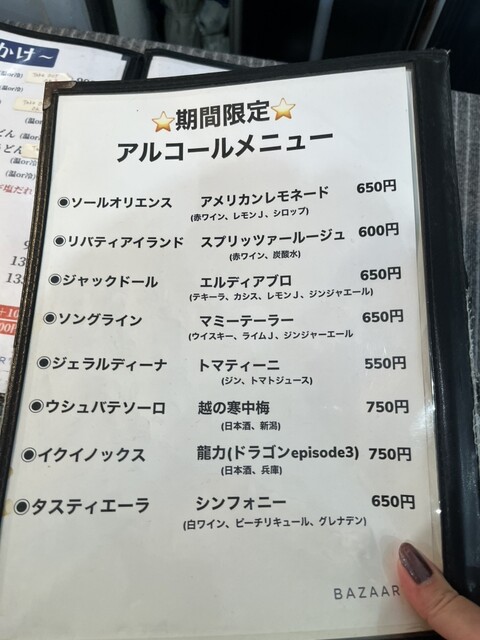 ⭐期間限定⭐
アルコールメニュー
◉ソールオリエンス アメリカンレモネード 650円
(赤ワイン、レモンJ、シロップ)
◉リバティアイランド スプリッツァールージュ 600円
(赤ワイン、炭酸水)
◉ジャックドール エルディアブロ 650円
(テキーラ、カシス、レモンJ、ジンジャエール)
◉ソングライン マミーテーラー 650円
(ウイスキー、ライムJ、ジンジャーエール
◉ジェラルディーナ トマティーニ 550円
(ジン、トマトジュース)
◉ウシュバテソーロ 越の寒中梅 750円
(日本酒、新潟)
◉イクイノックス 龍力(ドラゴンepisode3) 750円
(日本酒、兵庫)
◉タスティエーラ シンフォニー 650円
(白ワイン、ピーチリキュール、グレナデン)
BAZAAR
かけ～
(温or冷)
(温or冷)